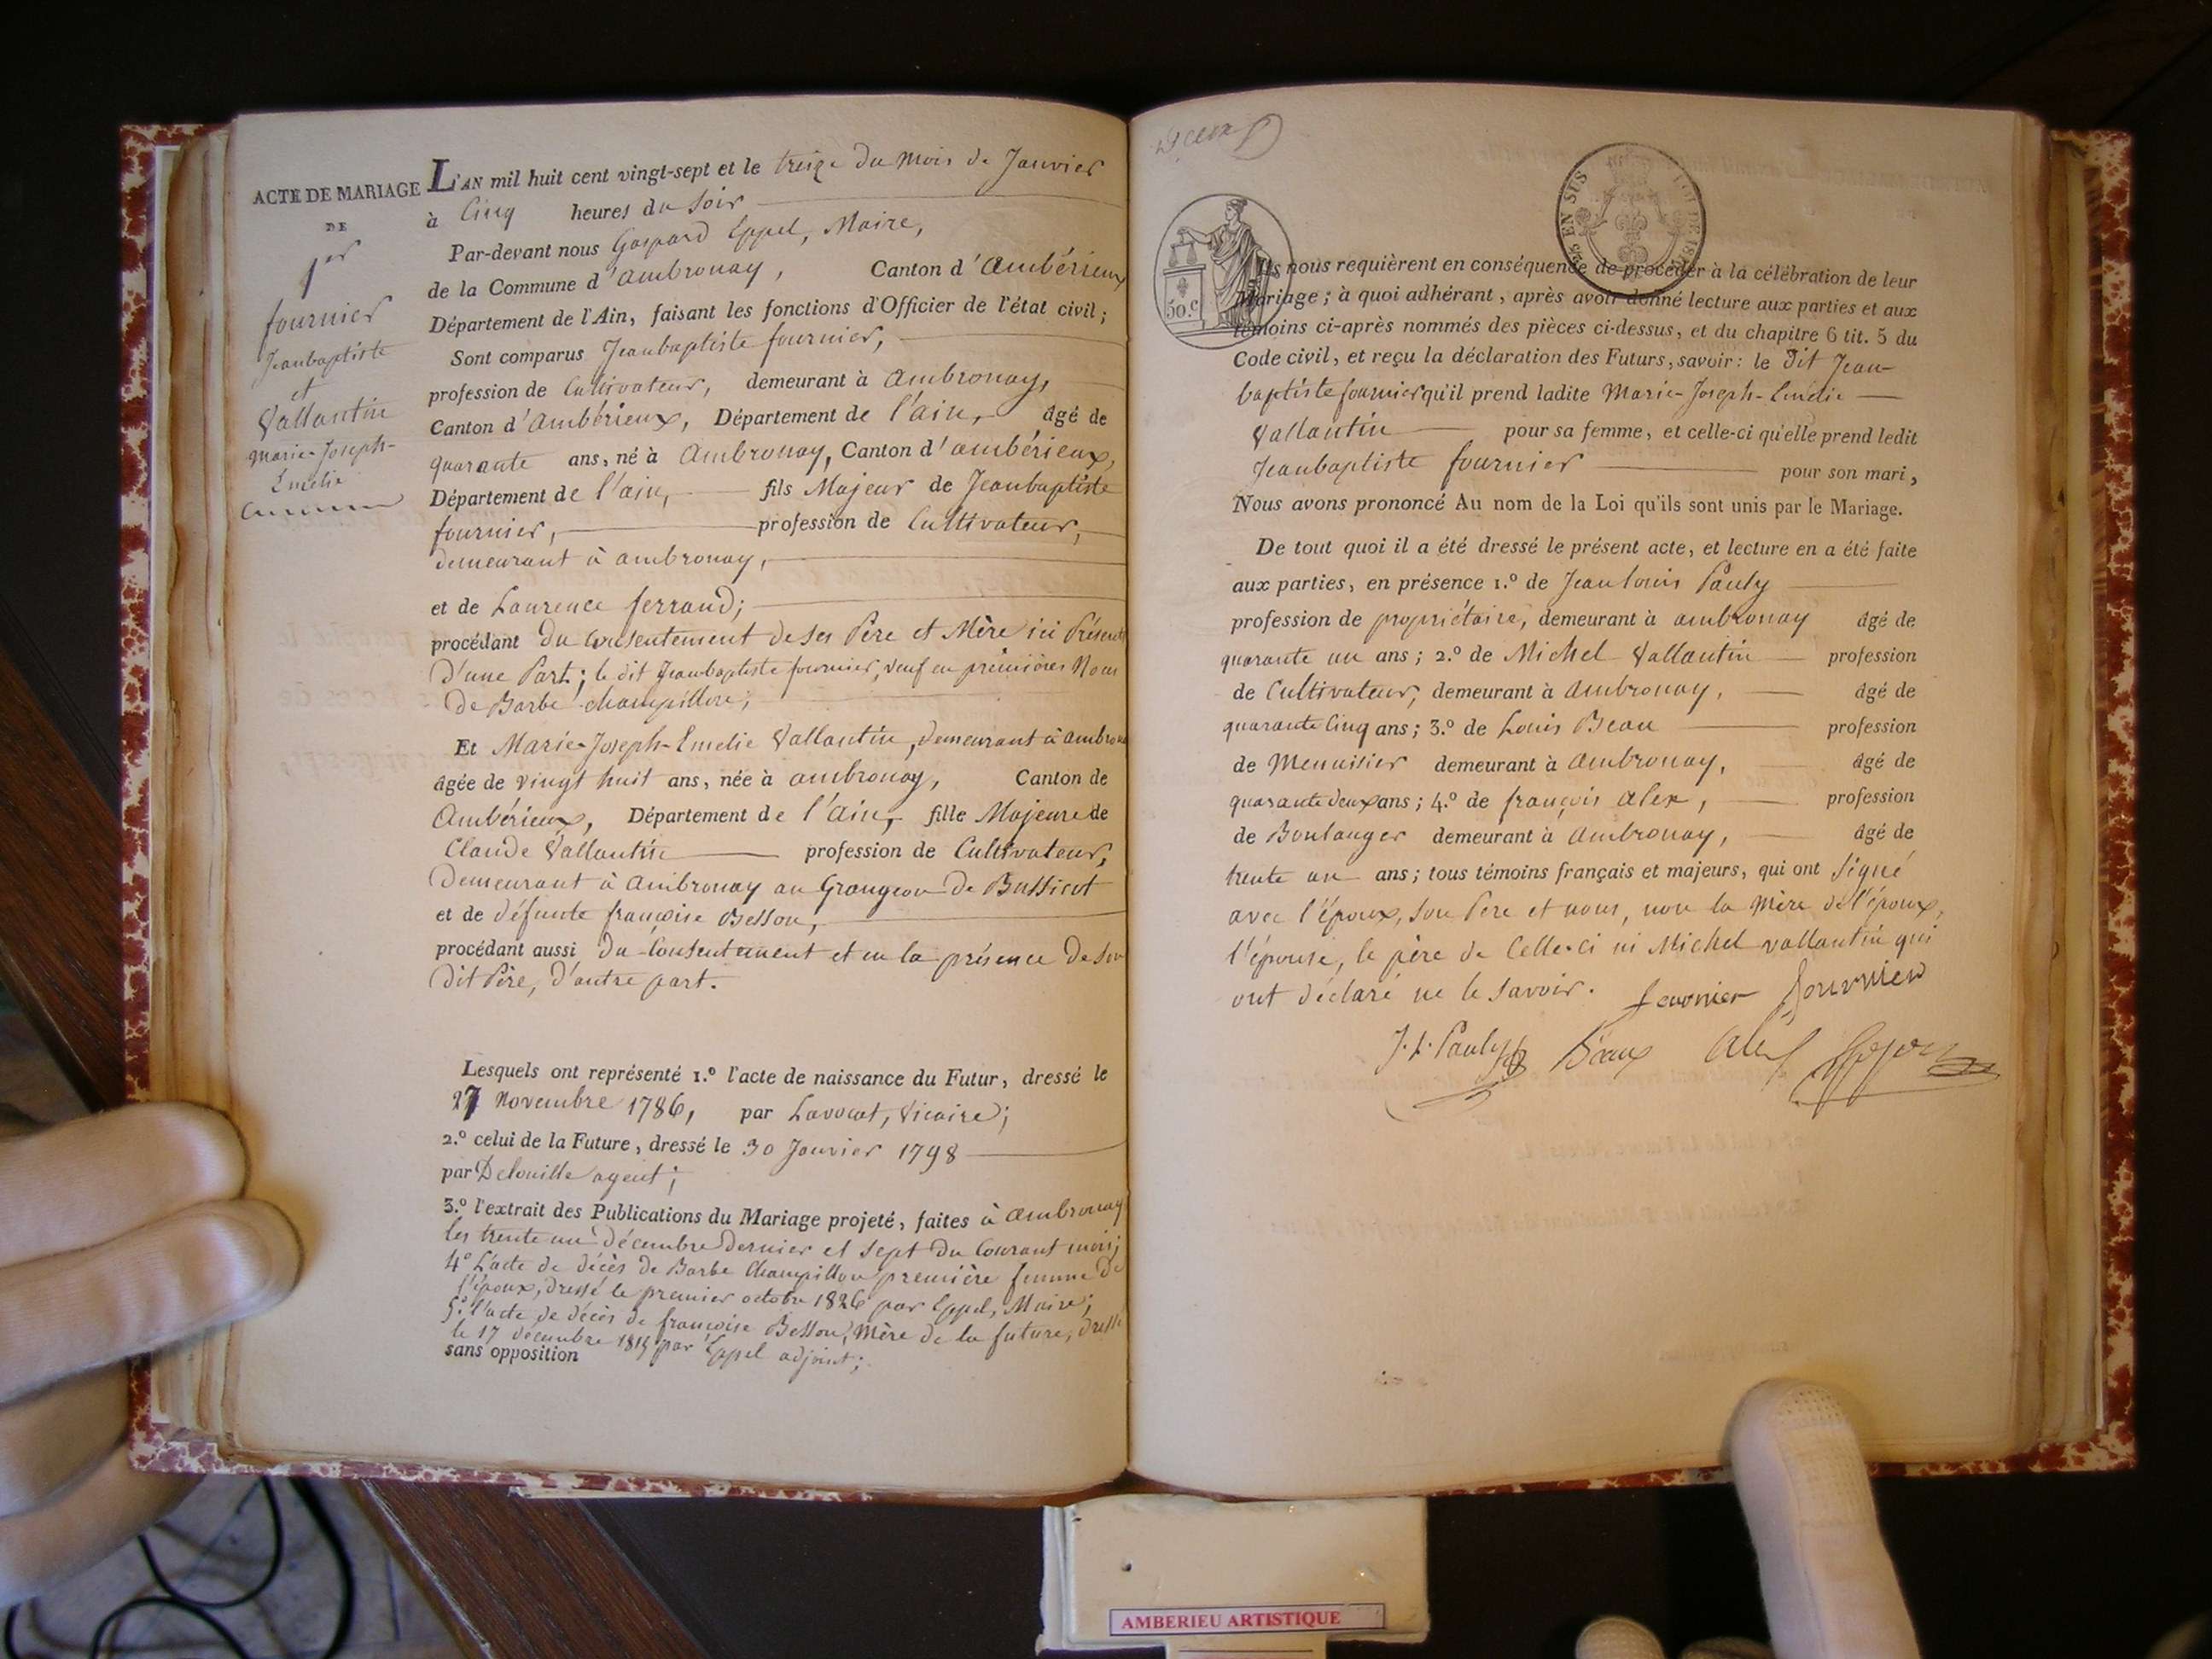 ACTE DE MARIAGE
DE
1er
fournier
Jeanbaptiste
et
Vallantin
Marie-Joseph-
Emelie
L'AN mil huit cent vingt-sept et le treize du mois de Janvier
à Cinq heures du Soir
Par-devant nous Gaspard Eppel, Maire,
de la Commune d'ambronay, Canton d'Ambérieux
Département de l'Ain, faisant les fonctions d'Officier de l'état civil;
Sont comparus Jeanbaptiste fournier,
profession de Cultivateur, demeurant à Ambronay,
Canton d'Ambérieux, Département de l'ain, âgé de
quarante ans, né à Ambronay, Canton d'ambérieux,
Département de l'ain, fils Majeur de Jeanbaptiste
fournier, profession de Cultivateur,
demeurant à ambronay,
et de Laurence ferrand;
procédant du Consentement de ses Père et Mère ici Présents
D'une Part; le dit Jeanbaptiste fournier, veuf en premières Noces
de Barbe champillon;
Et Marie-Joseph-Emelie Vallantin, demeurant à ambronay
âgée de vingt huit ans, née à ambronay, Canton de
Ambérieux, Département de l'Ain, fille Majeure de
Claude Vallantin profession de Cultivateur,
Demeurant à Ambronay au Grangeon de Bussicot
et de défunte françoise Besson,
procédant aussi du Consentement et en la présence de son
dit Père, d'autre part.
Lesquels ont représenté 1.º l'acte de naissance du Futur, dressé le
27 Novembre 1786, par Lavocat, Vicaire;
2.º celui de la Future, dressé le 30 Janvier 1798
par Delouille agent;
3.º l'extrait des Publications du Mariage projeté, faites à Ambronay
les trente un décembre Dernier et sept du Courant mois;
4º L'acte de décès de Barbe Champillon première femme de
l'époux, dressé le premier octobre 1826 par Eppel, Maire;
5.º l'acte de décès de françoise Besson, Mère de la future, dressé
le 17 décembre par Eppel adjoint;
sans opposition
50.c
EN SUS
Ils nous requièrent en conséquence de procéder à la célébration de leur
Mariage; à quoi adhérant, après avoir donné lecture aux parties et aux
témoins ci-après nommés des pièces ci-dessus, et du chapitre 6 tit. 5 du
Code civil, et reçu la déclaration des Futurs, savoir: le dit Jean-
baptiste fournier qu'il prend ladite Marie-Joseph-Emélie
Vallantin pour sa femme, et celle-ci qu'elle prend ledit
Jeanbaptiste fournier pour son mari,
Nous avons prononcé Au nom de la Loi qu'ils sont unis par le Mariage.
De tout quoi il a été dressé le présent acte, et lecture en a été faite
aux parties, en présence 1.º de Jean louis Pauly
profession de propriétaire, demeurant à ambronay âgé de
quarante un ans; 2.º de Michel Vallantin profession
de Cultivateur, demeurant à Ambronay, âgé de
quarante Cinq ans; 3.º de Louis Beau profession
de Menuisier demeurant à Ambronay, âgé de
quarante deux ans; 4.º de françois alex, profession
de Boulanger demeurant à Ambronay, âgé de
trente un ans; tous témoins français et majeurs, qui ont signé
avec l'époux, son Père et nous, non la Mère de l'époux,
l'épouse, le père de Celle-ci ni Michel vallantin qui
ont déclaré ne le savoir. fournier fournier
J. L. Pauly Beaux alex
AMBERIEU ARTISTIQUE